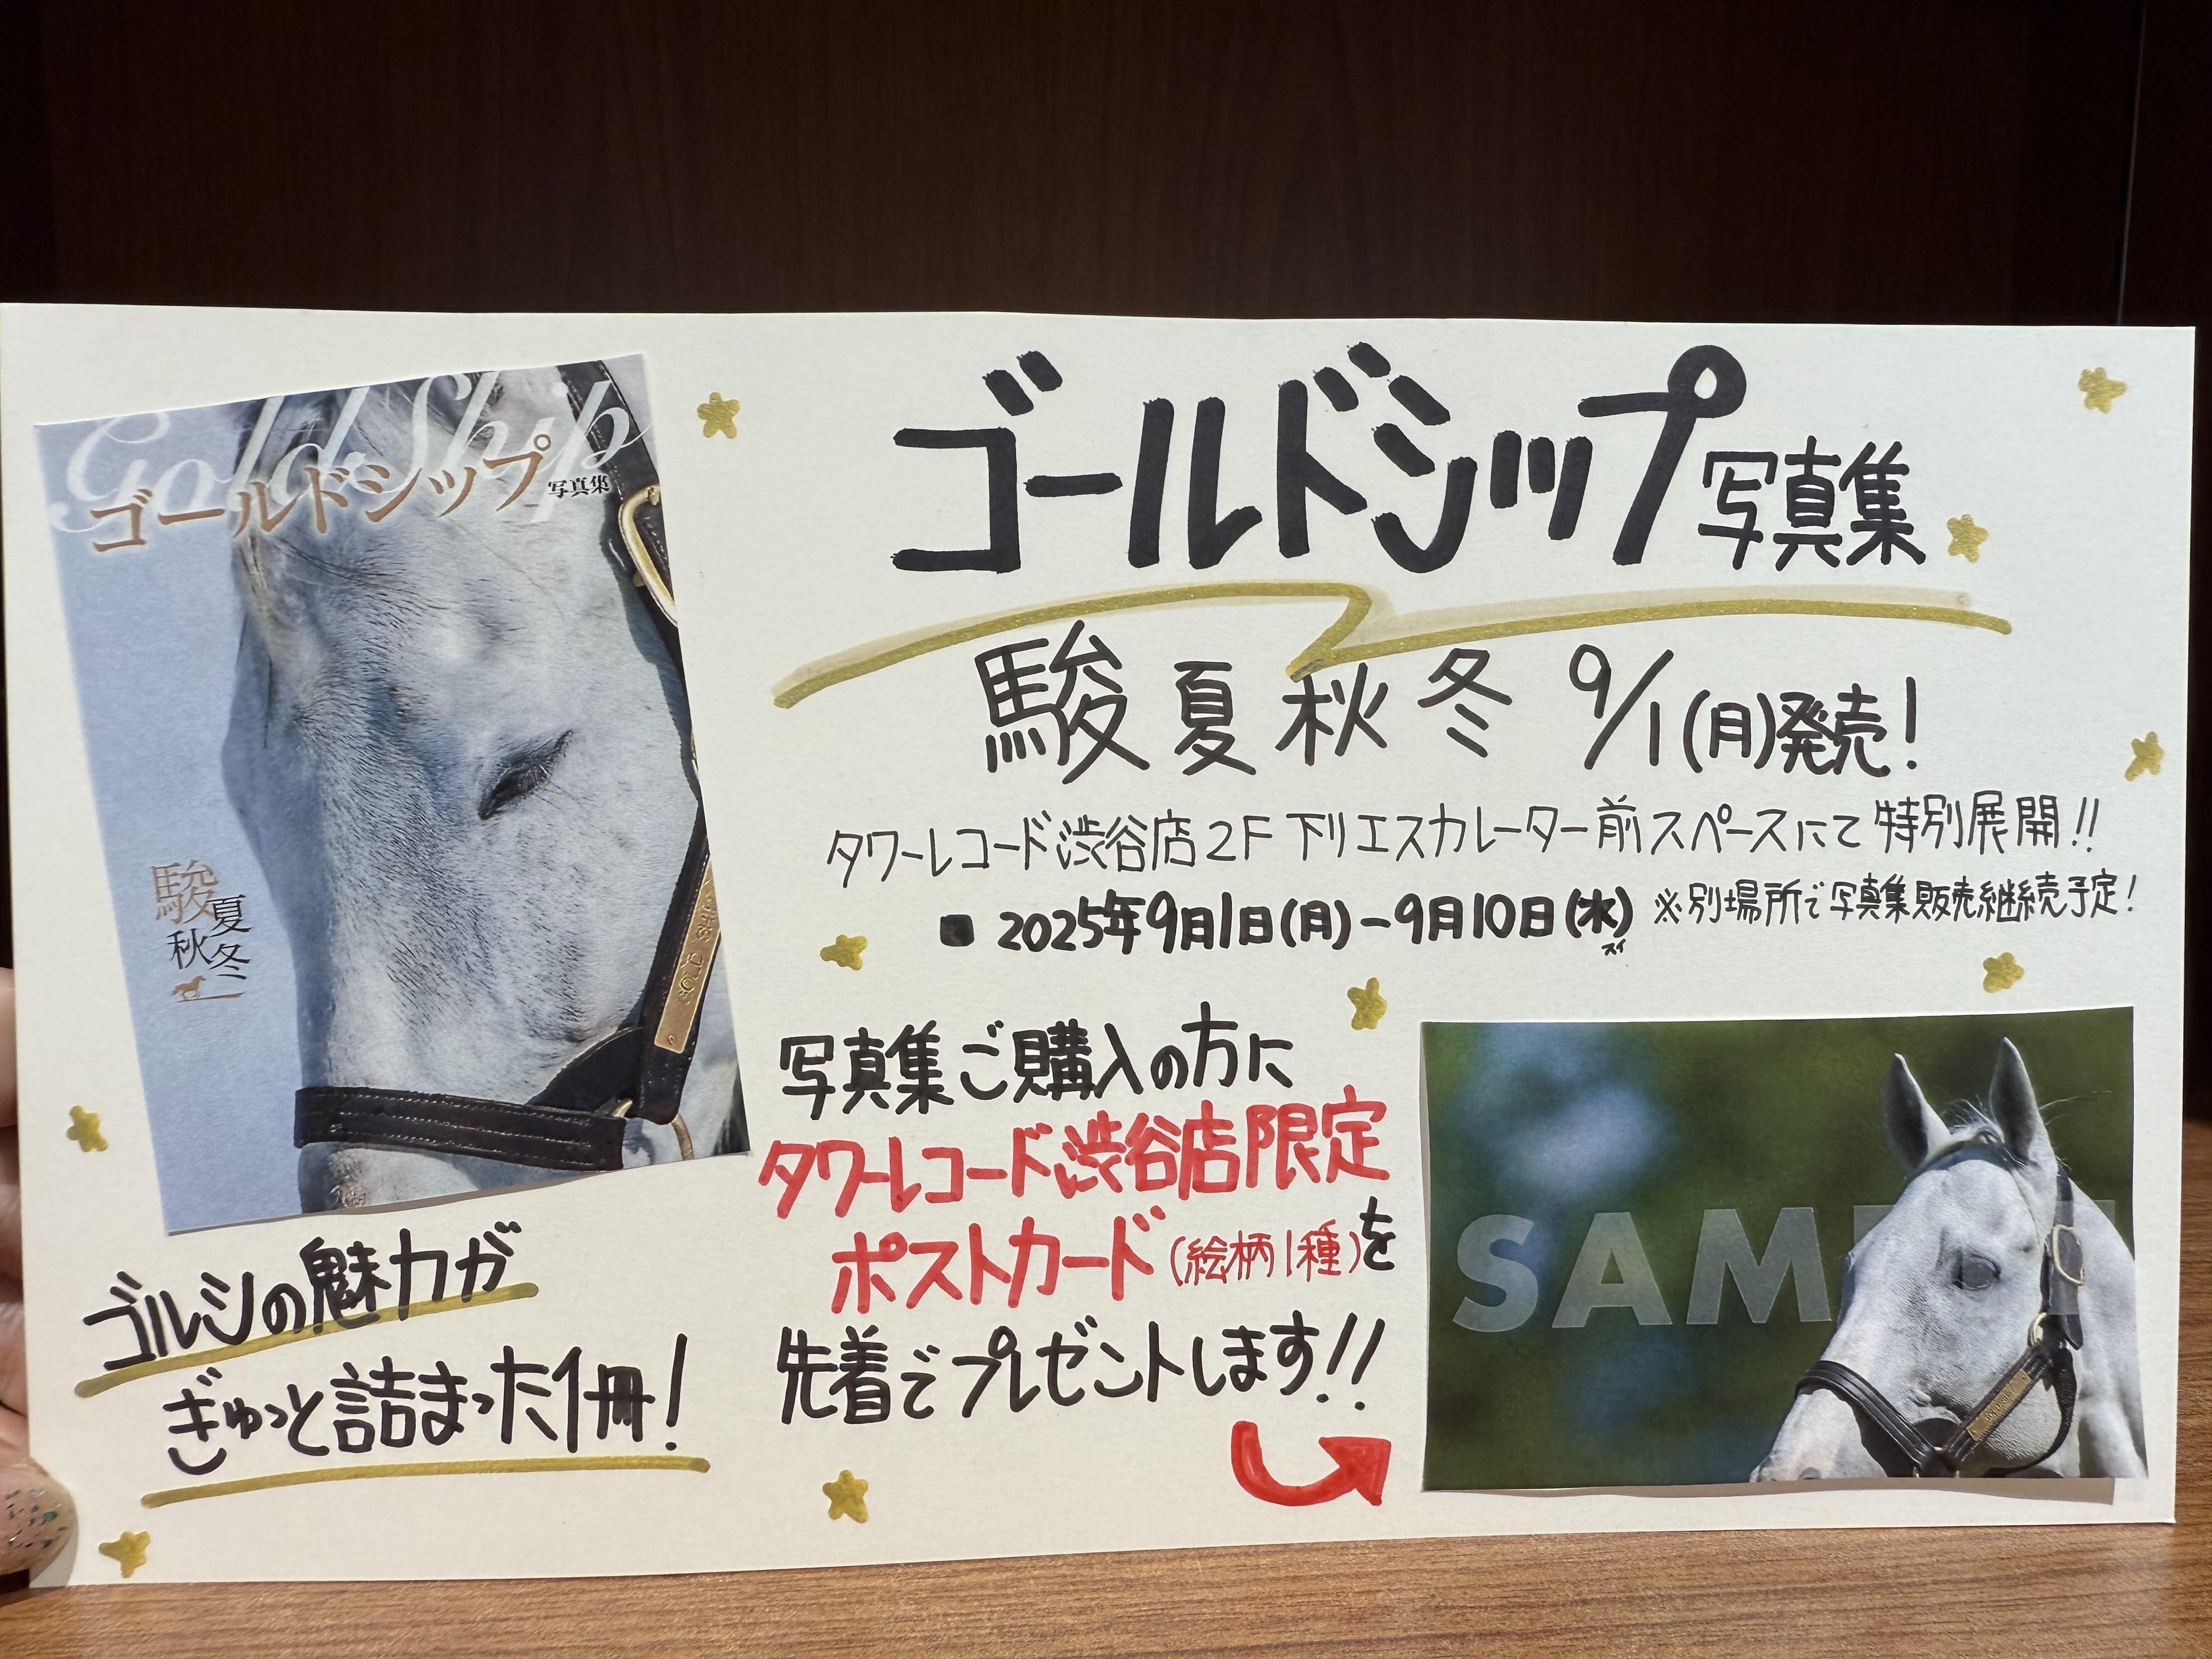 Gold Ship
ゴールドシップ写真集
駿
夏
秋
冬
ゴルシの魅力が
ぎゅっと詰まった1冊!
ゴールドシップ写真集
駿夏秋冬 9/1(月)発売!
タワーレコード渋谷店2F 下りエスカレーター前スペースにて特別展開!!
■ 2025年9月1日(月)-9月10日(水) ※別場所で写真集販売継続予定!
スイ
写真集ご購入の方に
タワーレコード渋谷店限定
ポストカード(絵柄1種)を
先着でプレゼントします!!
SAM